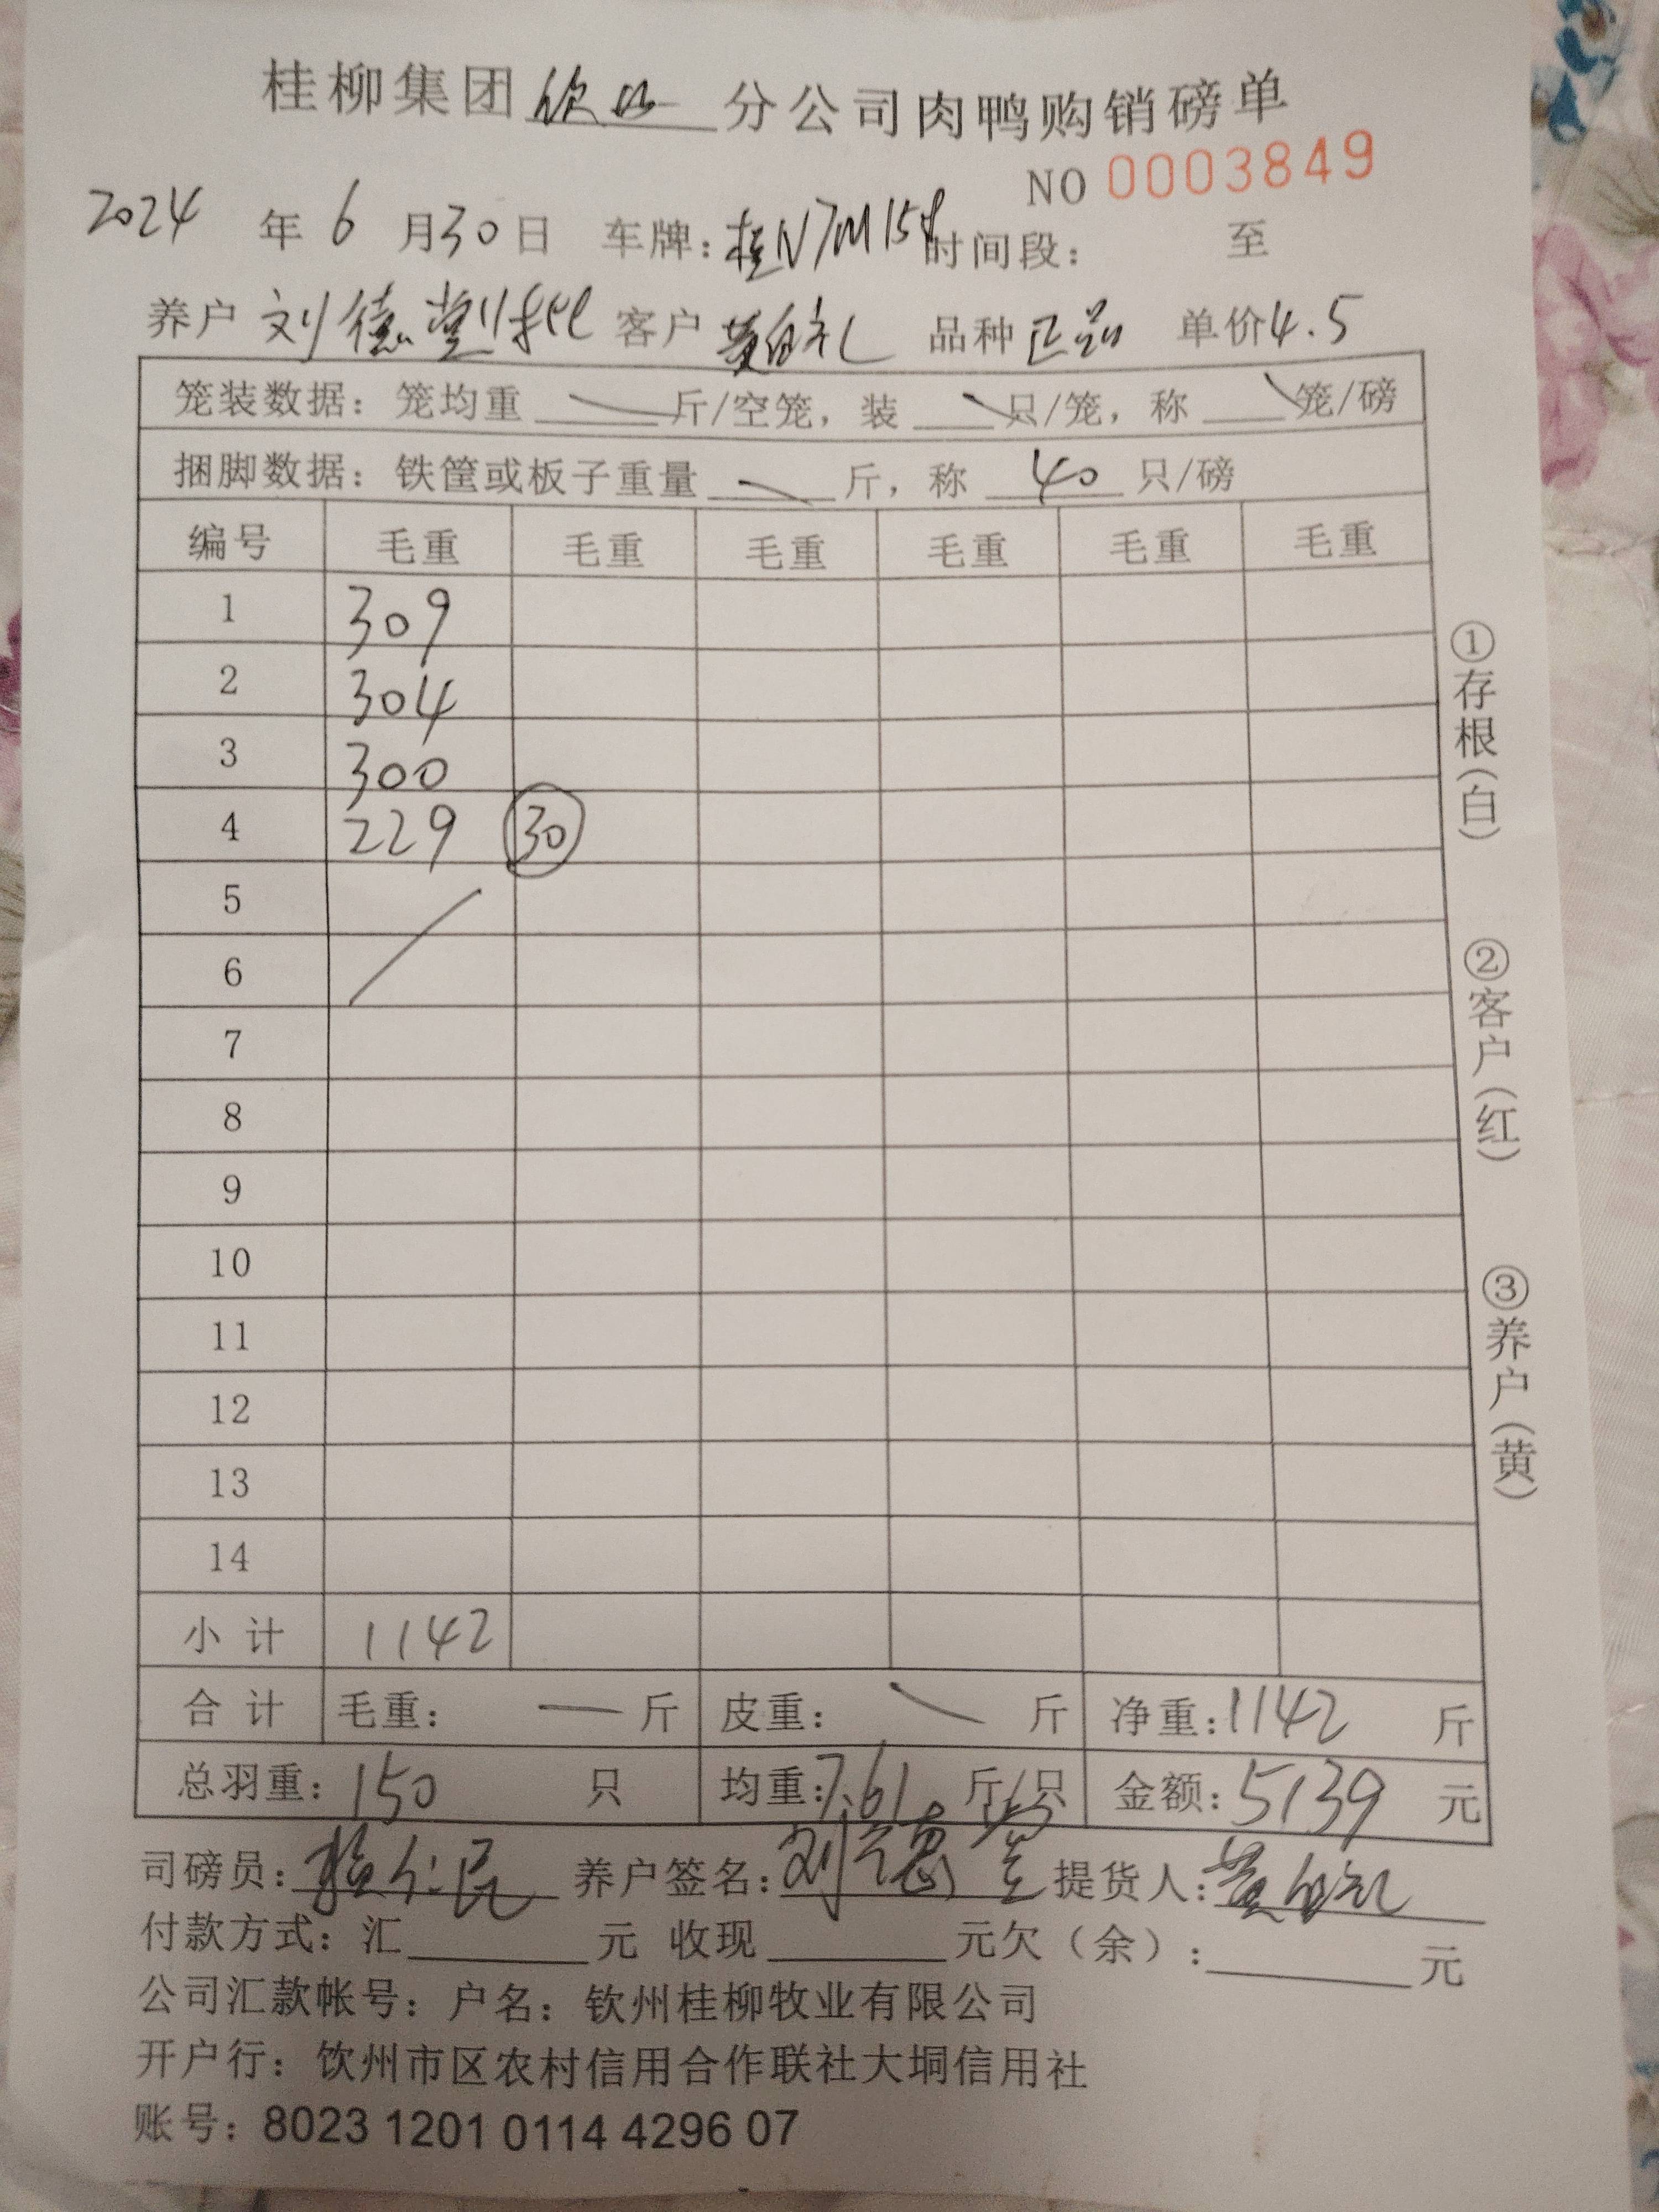 桂柳集团钦州分公司肉鸭购销磅单
NO 0003849
2024年6月30日 车牌：桂N7M15 时间段： 至
养户 刘德 客户 黄 品种 正品 单价4.5
笼装数据：笼均重 斤/空笼，装 只/笼，称 笼/磅
捆脚数据：铁筐或板子重量 斤，称 40 只/磅
编号 毛重 毛重 毛重 毛重 毛重 毛重
1 309
2 304
3 300
4 229 30
5
6
7
8
9
10
11
12
13
14
小计 1142
合计 毛重： 斤 皮重： 斤 净重：1142 斤
总羽重：150 只 均重：7.61 斤/只 金额：5139 元
司磅员： 仁民 养户签名：刘德 提货人：黄
付款方式：汇 元 收现 元欠（余）： 元
公司汇款帐号：户名：钦州桂柳牧业有限公司
开户行：饮州市区农村信用合作联社大垌信用社
账号：8023 1201 0114 4296 07
①存根（白）
②客户（红）
③养户（黄）